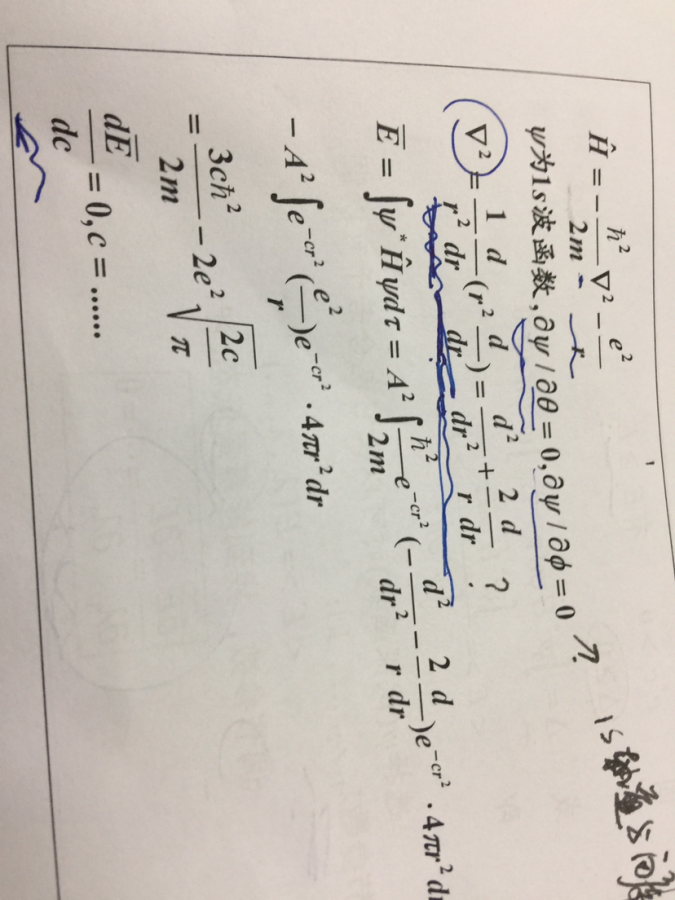 Ĥ = -ħ²/2m ∇² - e²/r
ψ为1s波函数,∂ψ/∂θ=0,∂ψ/∂ϕ=0
∇² = 1/r² d/dr (r² d/dr) = d²/dr² + 2/r d/dr ?
Ē = ∫ψ*Ĥψdτ = A²∫ħ²/2m e^{-cr²}(-d²/dr² - 2/r d/dr)e^{-cr²}·4πr²d
-A²∫e^{-cr²}(e²/r)e^{-cr²}·4πr²dr
= 3cħ²/2m - 2e²√(2c/π)
dĒ/dc = 0, c = ......
1s